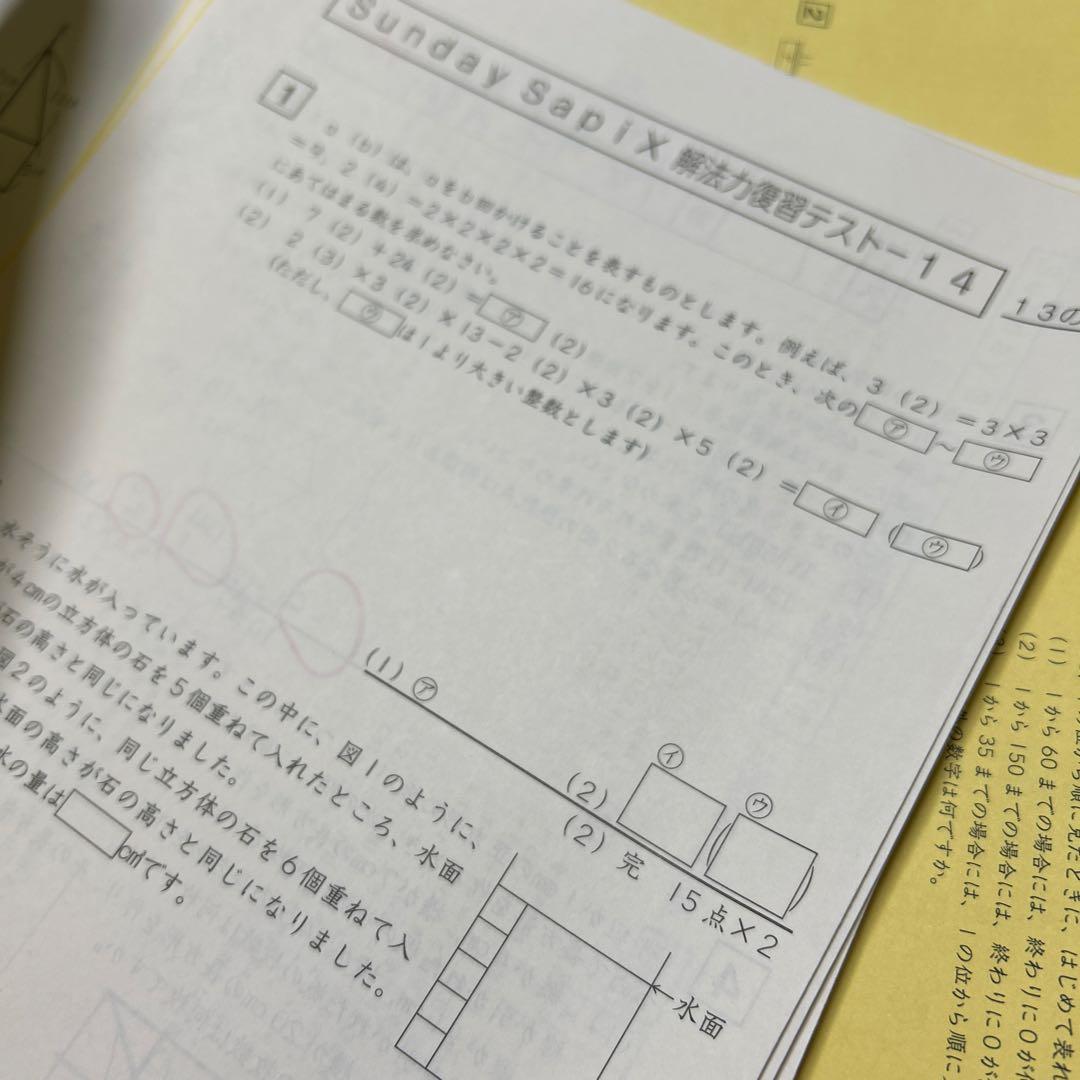 Sunday SapiX 解法力復習テスト－14
13の
1
a（b）は、aをb回かけることを表すものとします。例えば、3（2）＝3×3
＝9、2（4）＝2×2×2×2＝16になります。このとき、次の㋐～㋒
にあてはまる数を求めなさい。
（1） 7（2）＋24（2）＝㋐（2）
（2） 2（3）×3（2）×13－2（2）×3（2）×5（2）＝㋑（㋒）
（ただし、㋒は1より大きい整数とします）
（1）㋐
（2）㋑（㋒）
（2）完 15点×2
水そうに水が入っています。この中に、図1のように、
が4cmの立方体の石を5個重ねて入れたところ、水面
石の高さと同じになりました。
図2のように、同じ立方体の石を6個重ねて入
水面の高さが石の高さと同じになりました。
水の量は cm³です。
←水面
2
から順に見たときに、はじめて表れ
（1） 1から60までの場合には、終わりに0が
（2） 1から150までの場合には、終わりに0が
1から35までの場合には、1の位から順に
の数字は何ですか。